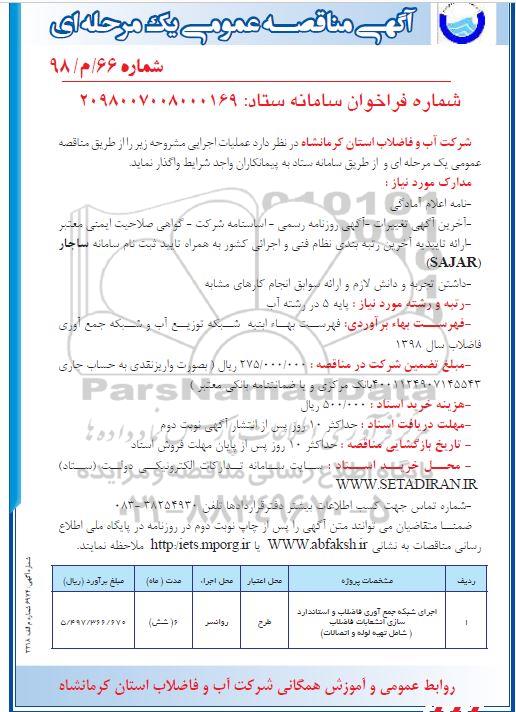 آگهی مناقصه عمومی یک مرحله ای
شماره ۶۶/م/ ۹۸
شماره فراخوان سامانه ستاد: ۲۰۹۸۰۰۷۰۰۸۰۰۰۱۶۹
شرکت آب و فاضلاب استان کرمانشاه در نظر دارد عملیات اجرایی مشروحه زیر را از طریق مناقصه
عمومی یک مرحله ای و از طریق سامانه ستاد به پیمانکاران واجد شرایط واگذار نماید.
مدارک مورد نیاز :
-نامه اعلام آمادگی
-آخرین آگهی تغییرات -آگهی روزنامه رسمی - اساسنامه شرکت - گواهی صلاحیت ایمنی معتبر
-ارائه تاییدیه آخرین رتبه بندی نظام فنی و اجرائی کشور به همراه تایید ثبت نام سامانه ساجار
(SAJAR)
-داشتن تجربه و دانش لازم و ارائه سوابق انجام کارهای مشابه
-رتبه و رشته مورد نیاز : پایه ۵ در رشته آب
-فهرست بهاء برآوردی: فهرست بهاء ابنیه شبکه توزیع آب و شبکه جمع آوری
فاضلاب سال ۱۳۹۸
-مبلغ تضمین شرکت در مناقصه : ۲۷۵/۰۰۰/۰۰۰ ریال ( بصورت واریزنقدی به حساب جاری
۴۰۰۱۱۲۴۹۰۷۱۴۵۵۴۳بانک مرکزی و یا ضمانتنامه بانکی معتبر )
-هزینه خرید اسناد : ۵۰۰/۰۰۰ ریال
-مهلت دریافت اسناد : حداکثر ۱۰ روز پس از انتشار آگهی نوبت دوم
- تاریخ بازگشایی مناقصه : حداکثر ۱۰ روز پس از پایان مهلت فروش اسناد
- محل خرید اسناد : سایت سامانه تدارکات الکترونیکی دولت (ستاد)
WWW.SETADIRAN.IR
-شماره تماس جهت کسب اطلاعات بیشتر دفترقراردادها تلفن ۳۸۲۵۴۹۳۰-۰۸۳
ضمنا متقاضیان می توانند متن آگهی را پس از چاپ نوبت دوم در روزنامه در پایگاه ملی اطلاع
رسانی مناقصات به نشانی WWW.abfaksh.ir یا http:/iets.mporg.ir ملاحظه نمایند.
ردیف مشخصات پروژه محل اعتبار محل اجراء مدت ( ماه) مبلغ برآورد (ریال)
۱ اجرای شبکه جمع آوری فاضلاب و استاندارد سازی انشعابات فاضلاب ( شامل تهیه لوله و اتصالات) طرح روانسر ۶( شش) ۵/۴۹۷/۳۶۶/۶۷۰
روابط عمومی و آموزش همگانی شرکت آب و فاضلاب استان کرمانشاه